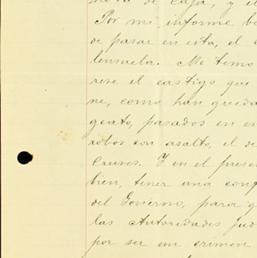 de caja, y el
Por mi informe
de pasar en esta, el
lenzuela. Me temo
rese el castigo que
ne, como han queda
gento, pasados en
robos con asalto, el de
Causes. Y en el prese
bien, tener una con
del Govierno, para q
las Autoridades Jud
por ser un crimen